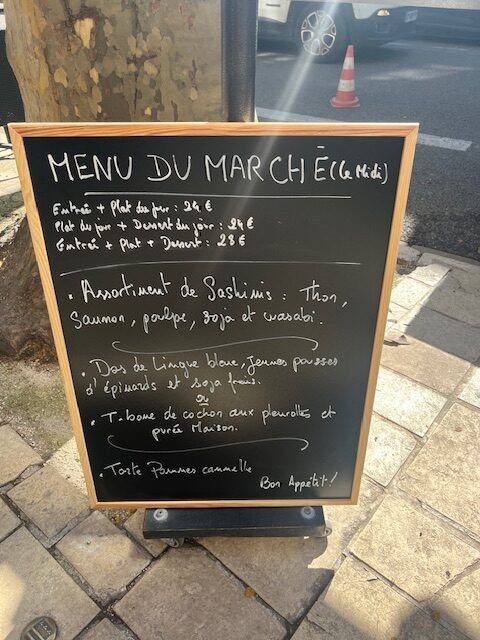 MENU DU MARCHÉ (Le Midi)
Entrée + Plat du jour : 24 €
Plat du jour + Dessert du jour : 24 €
Entrée + Plat + Dessert : 28 €
• Assortiment de Sashimis : Thon,
Saumon, poulpe, soja et wasabi.
• Dos de Lingue bleue, Jeunes pousses
d'épinards et soja frais.
ou
• T-bone de cochon aux pleurottes et
purée Maison.
• Tarte Pommes cannelle
Bon Appétit !